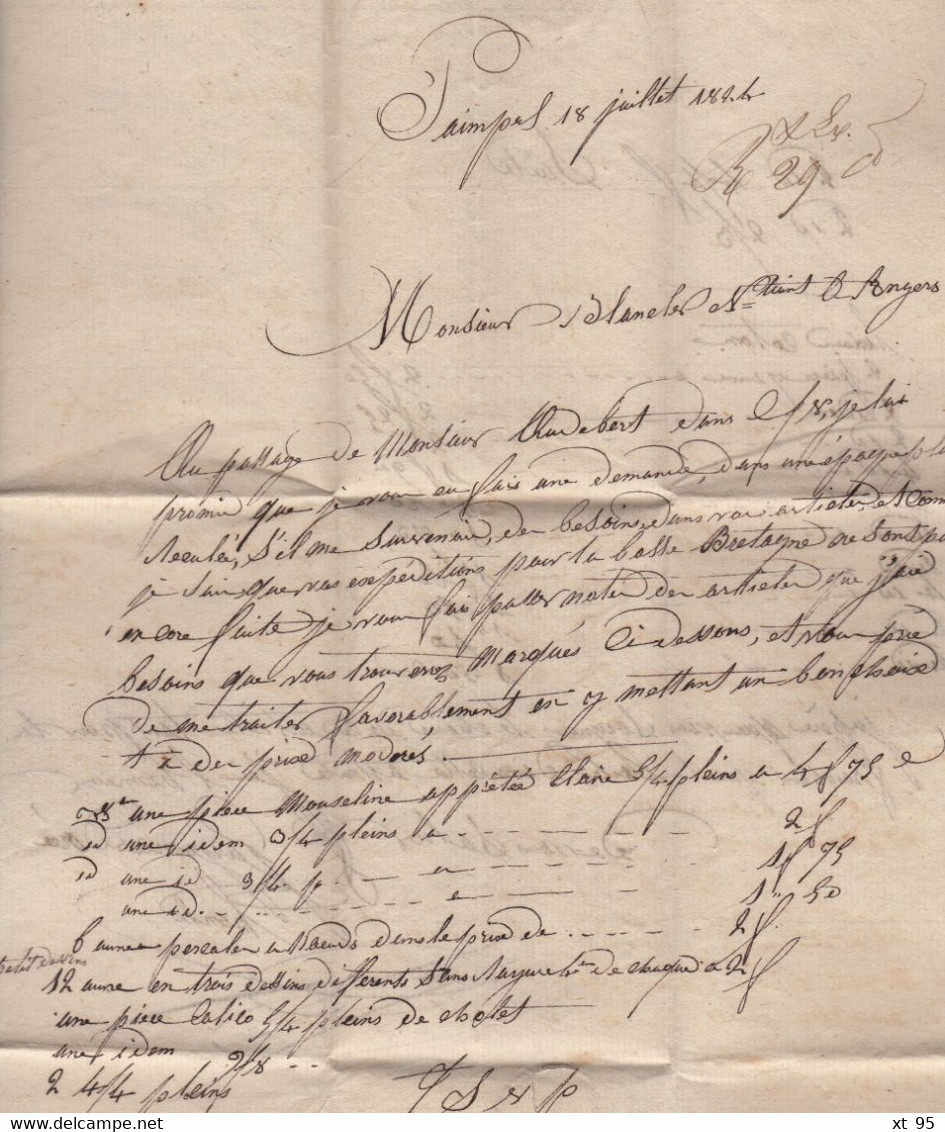 Paimpol 18 juillet 1824
R 29
Monsieur Blancler N. à Angers
Au passage de Monsieur Audebert dans 8, je lui
promis que je vous en fais une demande, dans une époque plu
reculée, s'il me survenais, de besoins, dans vos articles, et comm
je sais que vos expéditions pour la basse Bretagne ne sont pa
encore faite je vous fais passer note des articles que j'aie
besoins que vous trouverez marqués ci dessous, et vous prie
de me traiter favorablement en y mettant un bon choix
et à des prix modérés.
une piece Mouseline apprêtée claire 5/4 pleins a 4f75 c
id une idem 3/4 pleins a 2f
id une id 3/4 p. a 1f 75
une id. a 1 " 50
6 aunes percales a Nœuds dans le prix de 2f.
petit dessins
12 aune en trois dessins differents sans de chaque a 2f
une piece Calico 5/4 pleins de cholet
une idem 9/8
2 4/4 pleins
T S v p
xt 95